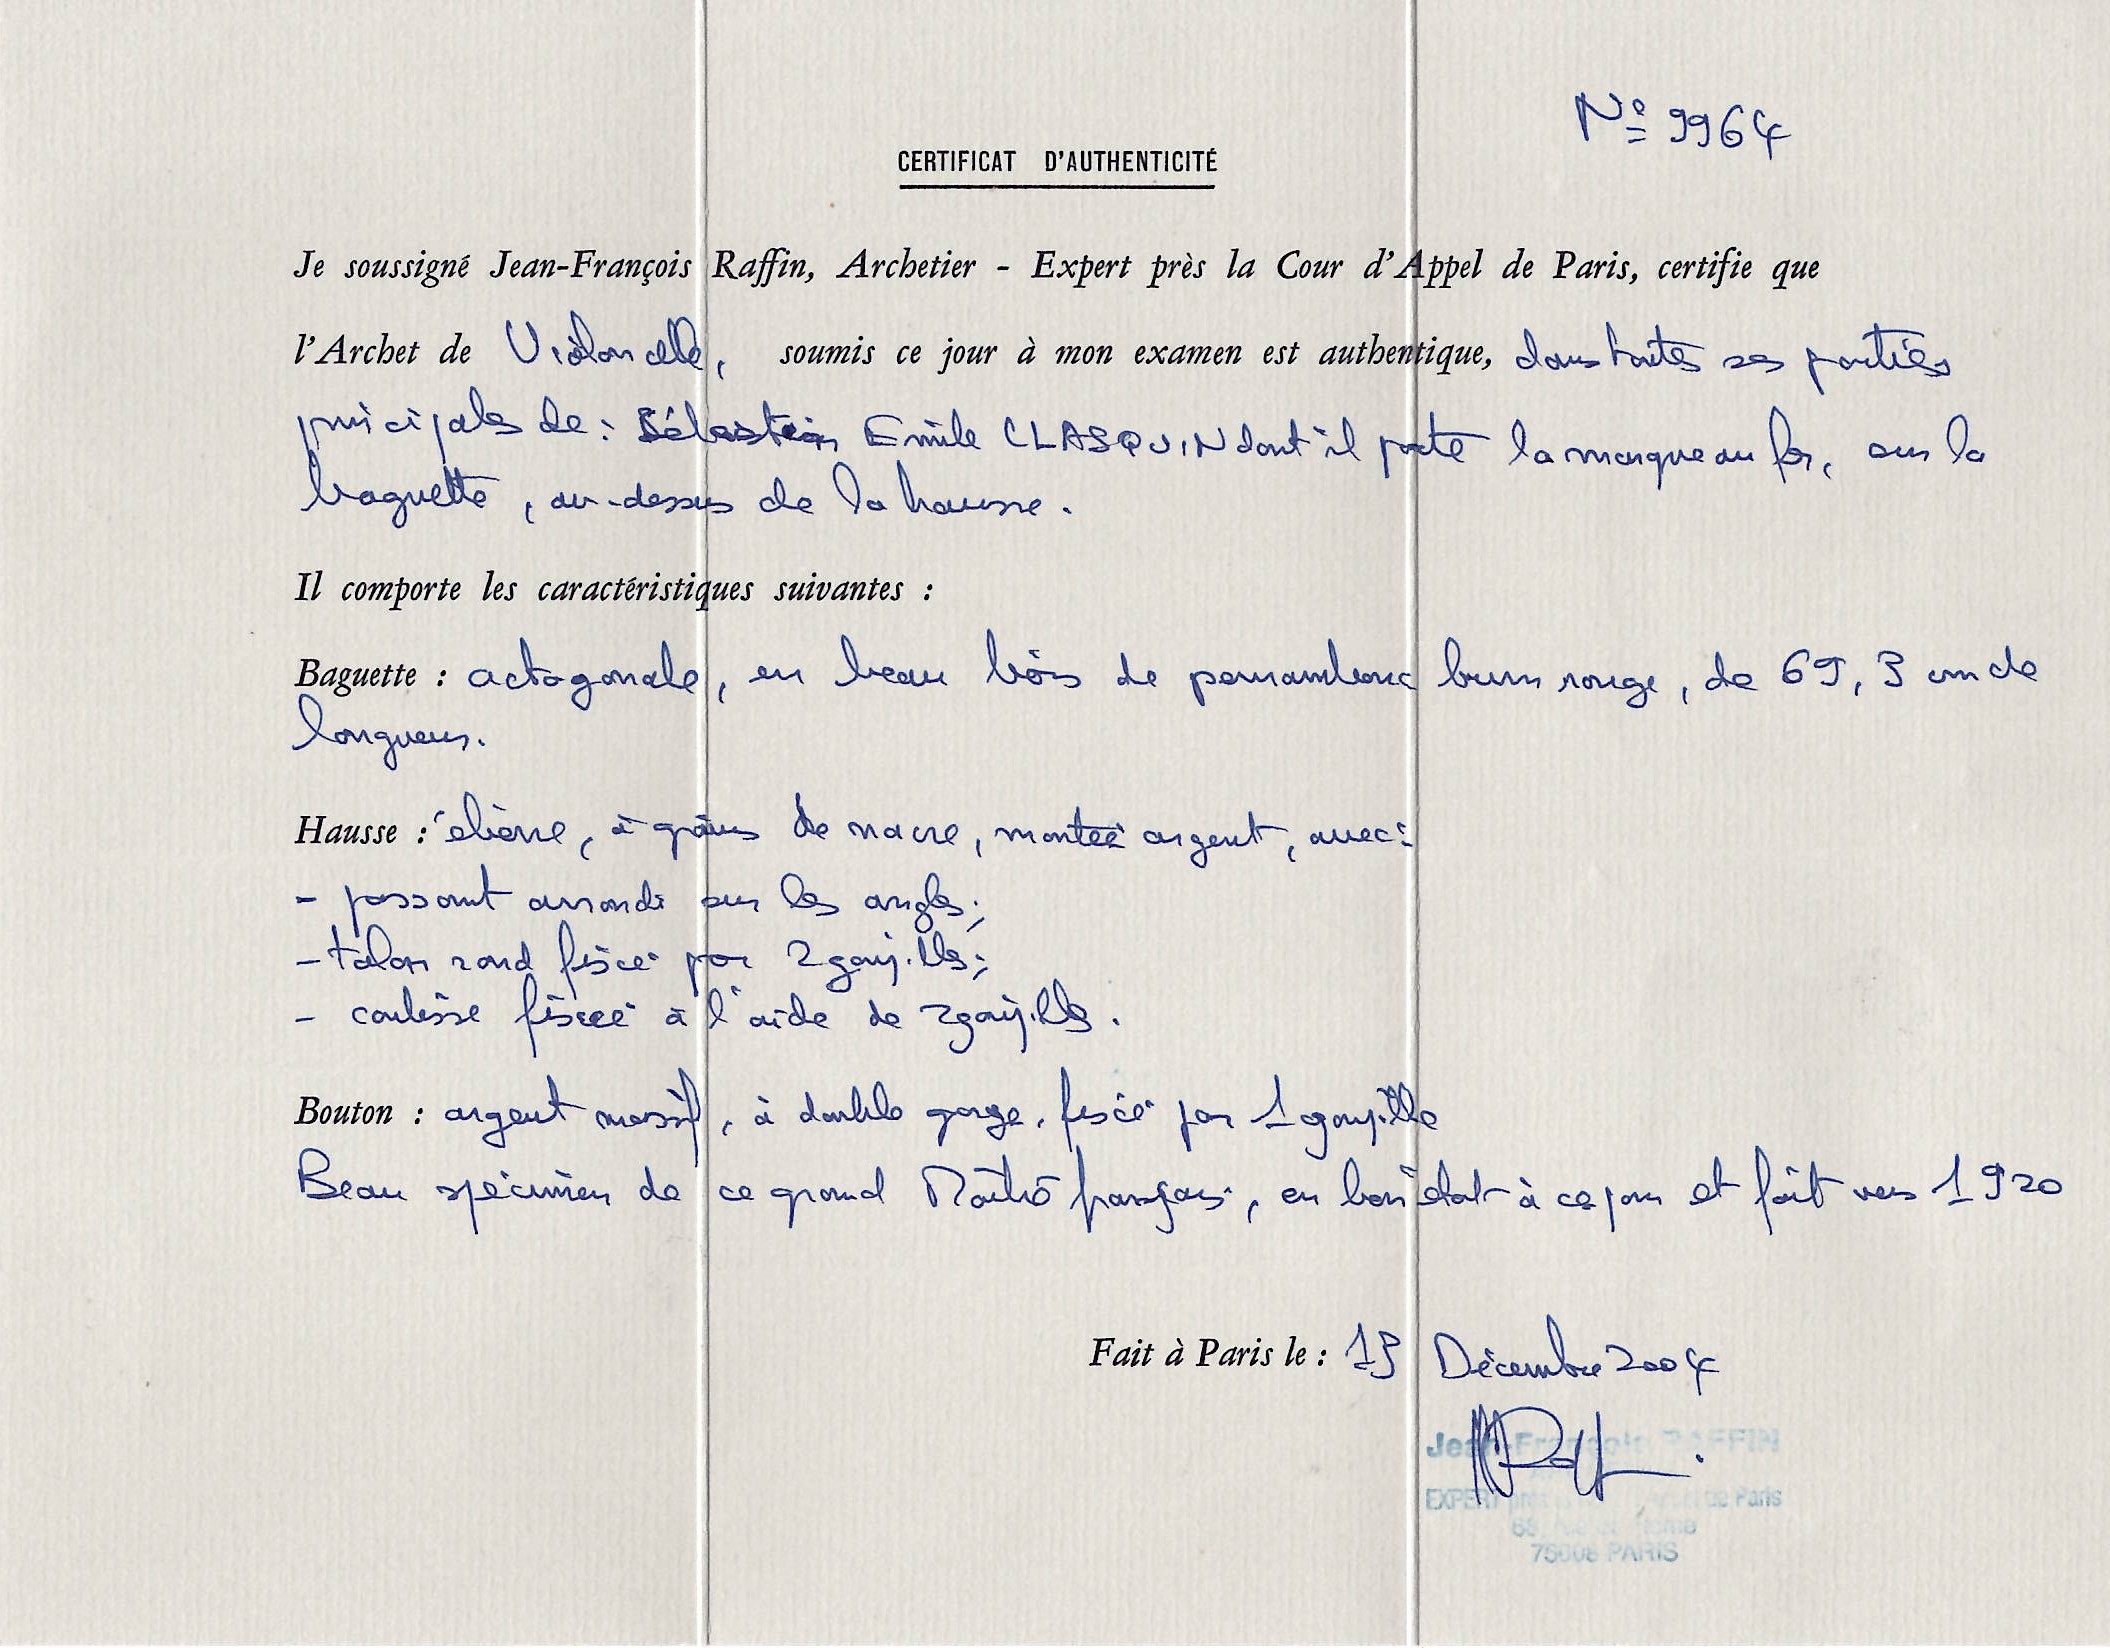 Nº 9964
CERTIFICAT D'AUTHENTICITÉ
Je soussigné Jean-François Raffin, Archetier - Expert près la Cour d'Appel de Paris, certifie que
l'Archet de Violoncelle, soumis ce jour à mon examen est authentique, dans toutes ses parties
principales de : Sébastien Emile CLASQUIN dont il porte la marque au fer, sur la
baguette, au-dessus de la hausse.
Il comporte les caractéristiques suivantes :
Baguette : octogonale, en beau bois de pernambouc brun rouge, de 69,3 cm de
longueur.
Hausse : ébène, à grains de nacre, montée argent, avec :
- passant arrondi sur les angles ;
- talon rond fixé par 2 goupilles ;
- coulisse fixée à l'aide de 2 goupilles.
Bouton : argent massif, à double gorge, fixé par 1 goupille
Beau spécimen de ce grand Maître français, en bon état à ce jour et fait vers 1920
Fait à Paris le : 13 Décembre 2004
Jean-François RAFFIN
EXPERT près de Paris
75008 PARIS